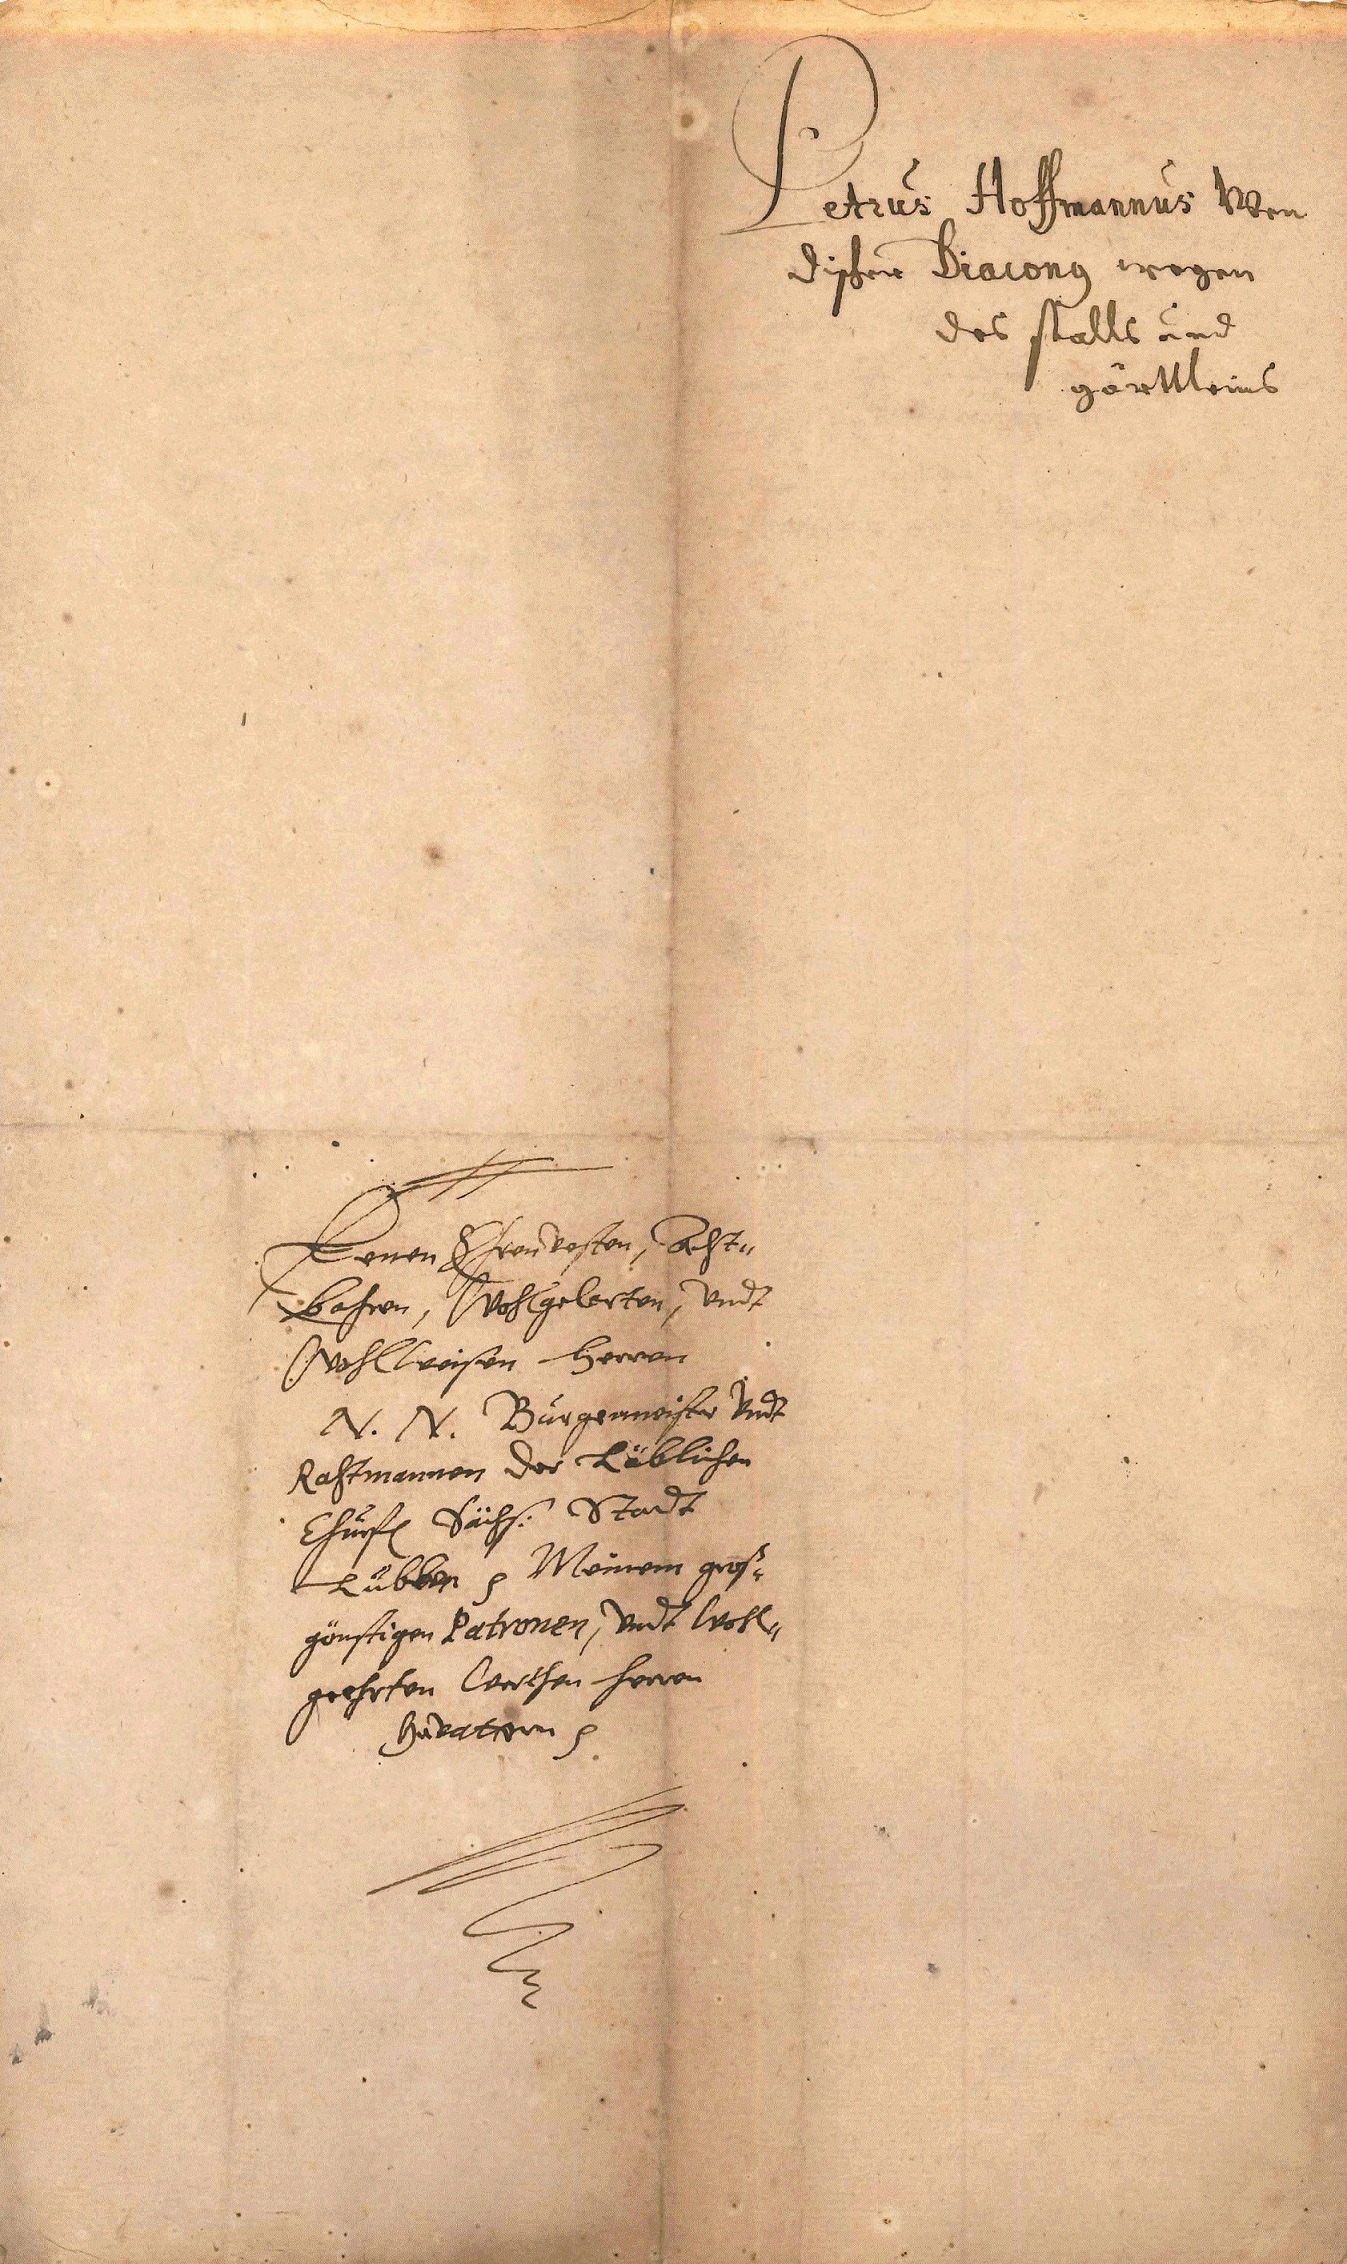 Petrus Hoffmannus Wen
discher Diaconus wegen
des stalls und
gärttleins
Denen Ehrenvesten, Acht-
bahren, Wohlgelarten, undt
Wohlweisen Herren
N. N. Bürgermeister undt
Rahtmannen der Löblichen
Churfl Sächs: Stadt
Lübben Meinem groß-
günstigen Patronen, undt Wohl-
geehrten werthen Herren
Gevattern